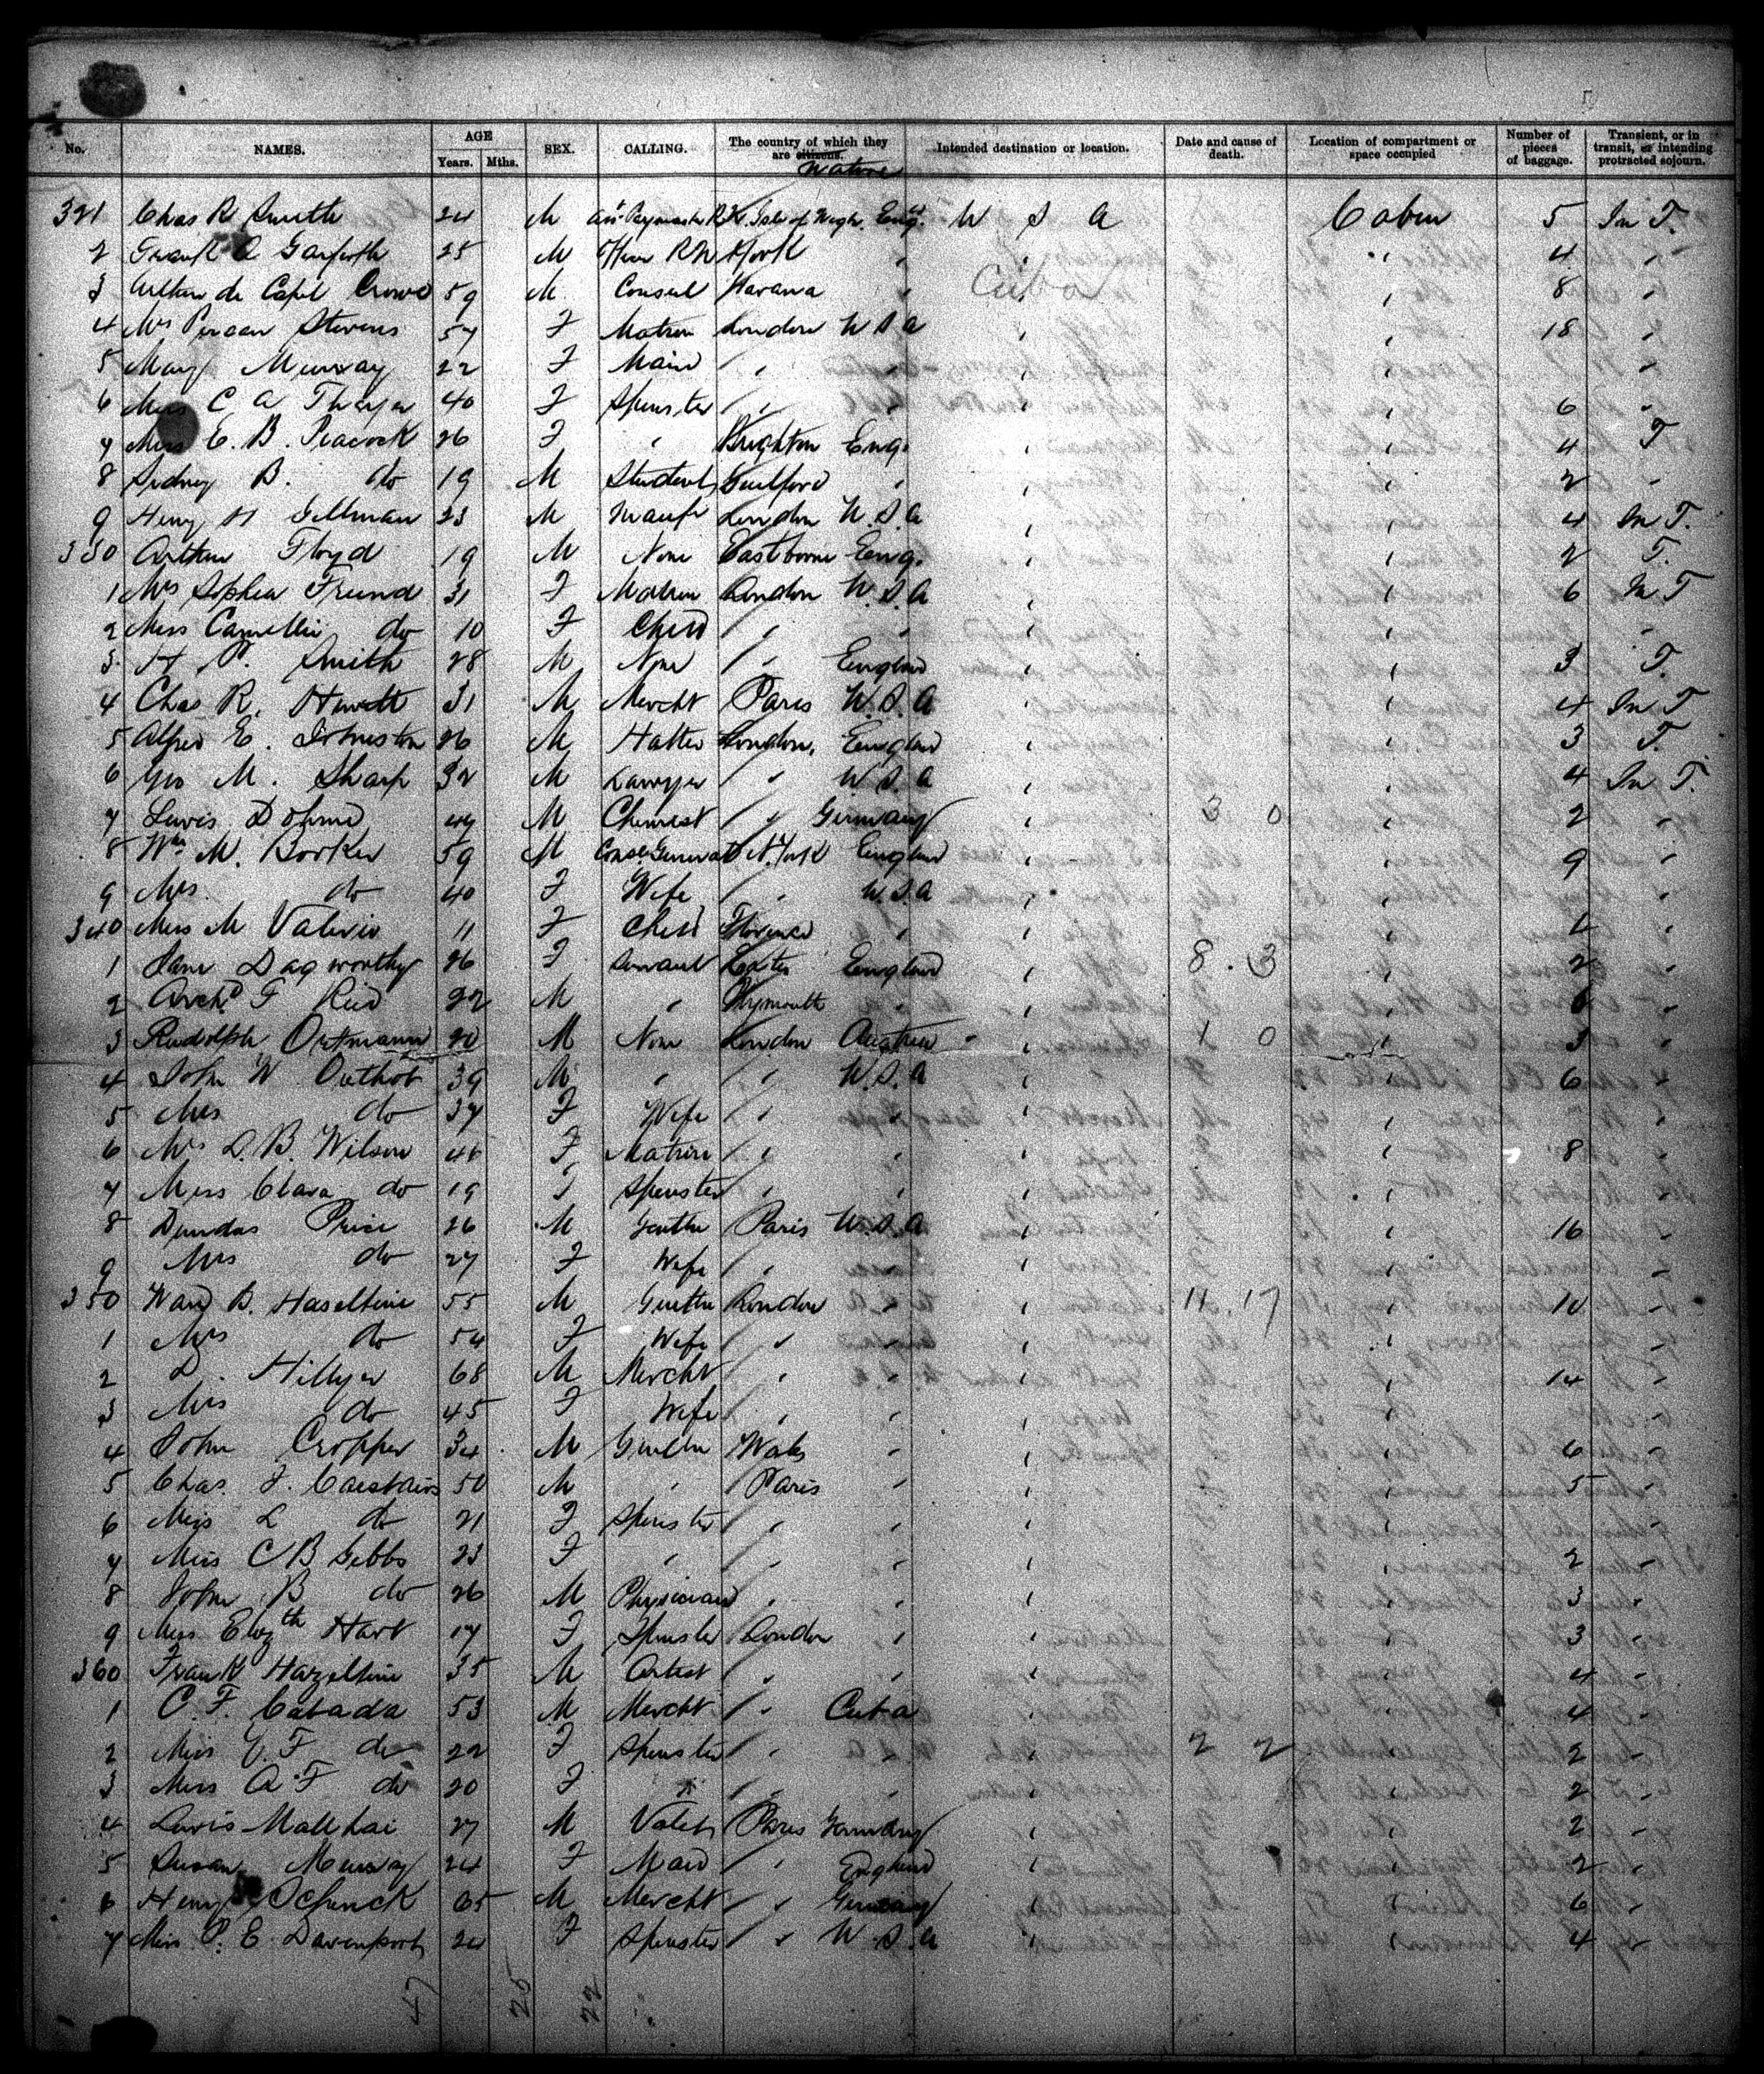 No. NAMES. AGE Years. Mths. SEX. CALLING. The country of which they are citizens. Native Intended destination or location. Date and cause of death. Location of compartment or space occupied Number of pieces of baggage. Transient, or in transit, or intending protracted sojourn.
321 Chas R Smith 24 M Asst Paymaster R.N. Isle of Wight Engd. U S A Cabin 5 In T.
2 Frank A Garforth 25 M Officer R N York " " " 4 "
3 Arthur de Capel Crowe 59 M Consul Havana " Cuba " 8 "
4 Mrs Stevens 57 F Matron London U S A " " 18 "
5 Mary Murray 22 F Maid " " " " "
6 Miss C A Thayer 40 F Spinster " " " " 6 "
7 Miss E. B. Peacock 26 F " Brighton Eng. " " 4 T
8 Sidney B. do 19 M Student Guilford " " " 2 "
9 Henry H Gillman 23 M Manfr London U.S.A " " 4 In T.
330 Arthur Floyd 19 M None Eastborne Eng. " " 2 T.
1 Mrs Sophia Freund 31 F Matron London U.S.A " " 6 In T
2 Miss Camellie do 10 F Child " " " "
3 H P. Smith 28 M None " England " " 3 T.
4 Chas R. Hewitt 31 M Mercht Paris U.S.A " " 4 In T
5 Alfred E. Johnston 26 M Hatter London, England " " 3 T.
6 Geo M. Sharp 32 M Lawyer " U.S.A " " 4 In T.
7 Lewis Dohme 49 M Chemist " Germany " 3 0 " 2 "
8 Wm M. Booker 59 M Consl General N. York England " " 9 "
9 Mrs do 40 F Wife " U.S.A " " "
340 Miss M Valerio 11 F Child Florence " " " "
1 Jane Dagworthy 26 F Servant Exeter England " 8 . 3 " 2 "
2 Archd F Reid 22 M " Plymouth " " " 6 "
3 Rudolph Ortmann 20 M None London Austria " 1 0 " 3 "
4 John W Outhout 39 M " " U.S.A " " 6 "
5 Mrs do 37 F Wife " " " " "
6 Mrs L. B. Wilson 46 F Matron " " " " 8 "
7 Miss Clara do 19 F Spinster " " " " "
8 Dundas Price 26 M Gentln Paris U.S.A " " 16 "
9 Mrs do 27 F Wife " " " "
350 Ward B. Haseltine 55 M Gentln London " " 11. 17 " 10 "
1 Mrs do 54 F Wife " " " "
2 D. Hillyer 68 M Mercht " " " " 14 "
3 Mrs do 45 F Wife " " " " "
4 John Cropper 34 M Gentln Wales " " " 6 "
5 Chas. F. Carstairs 50 M " Paris " " " 5 "
6 Miss L do 21 F Spinster " " " " "
7 Miss C B Gibbs 23 F " " " " " 2 "
8 John B do 26 M Physician " " " " 3 "
9 Miss Elizth Hart 17 F Spinster London " " " 3 "
360 Frank Hazeltine 35 M Artist " " " " 4 "
1 C. F. Cabada 53 M Mercht " Cuba " " 4 "
2 Miss F do 22 F Spinster " " " 2 2 " 2 "
3 Miss A F do 20 F " " " " " 2 "
4 Lewis 27 M Valet Paris Germany " " 2 "
5 Susan Murray 24 F Maid " England " " 2 "
6 Henry Schenck 65 M Mercht " Germany " " 6 "
7 Miss P. E Davenport 20 F Spinster " U.S.A " " 4 "
47 25 22